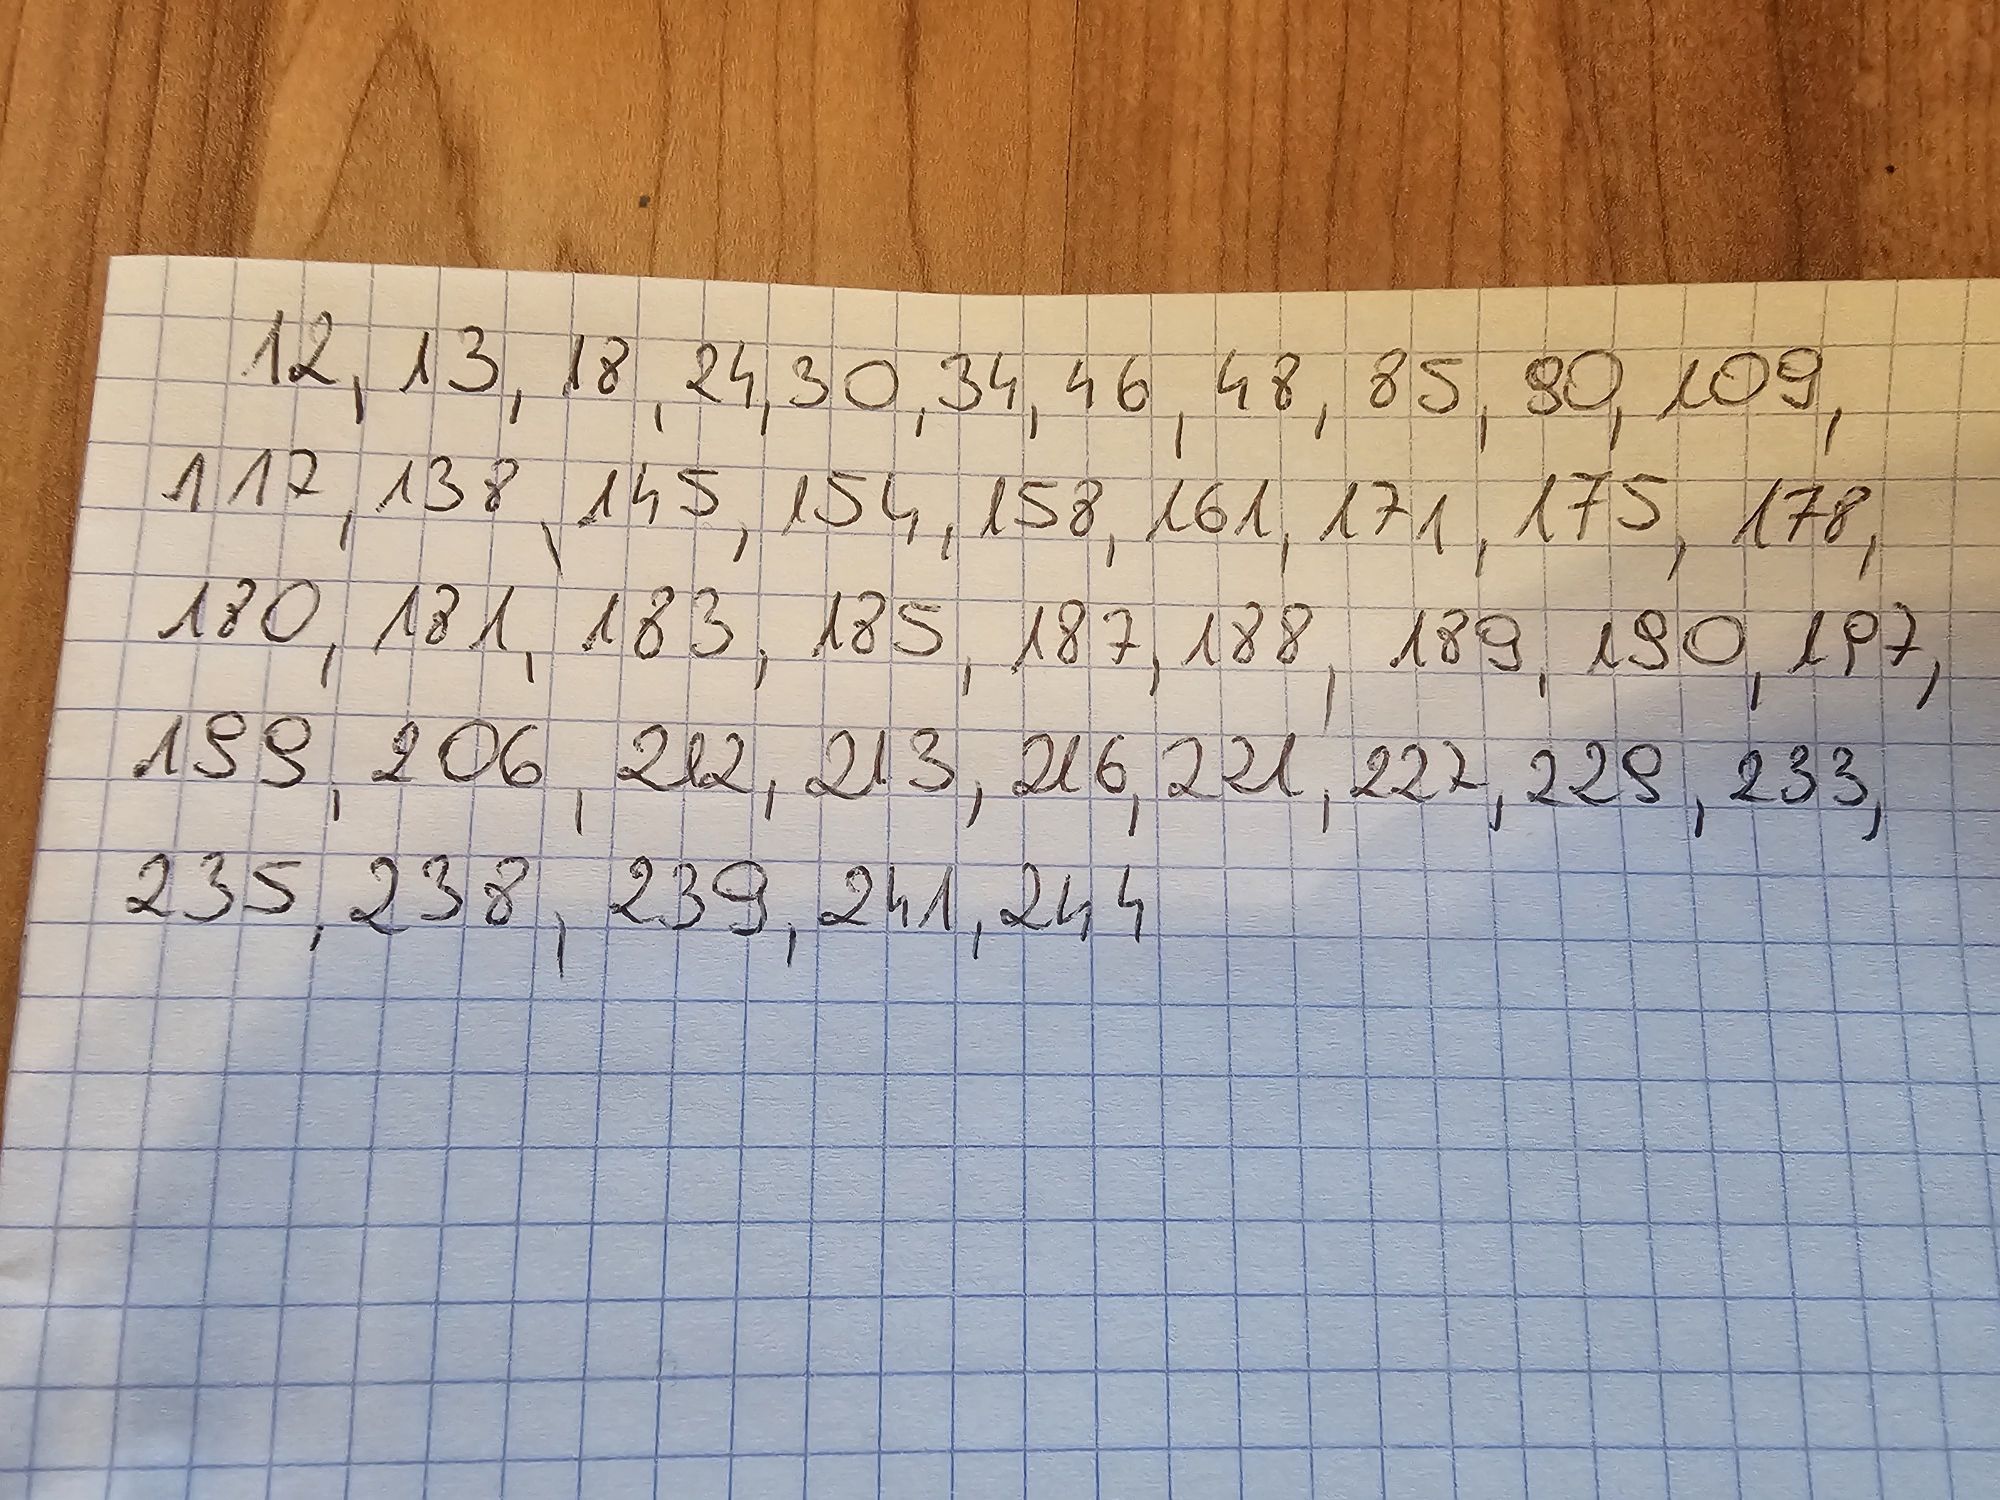 12, 13, 18, 24, 30, 34, 46, 48, 85, 90, 109,
117, 138, 145, 154, 158, 161, 171, 175, 178,
180, 181, 183, 185, 187, 188, 189, 190, 197,
199, 206, 212, 213, 216, 221, 227, 229, 233,
235, 238, 239, 241, 244